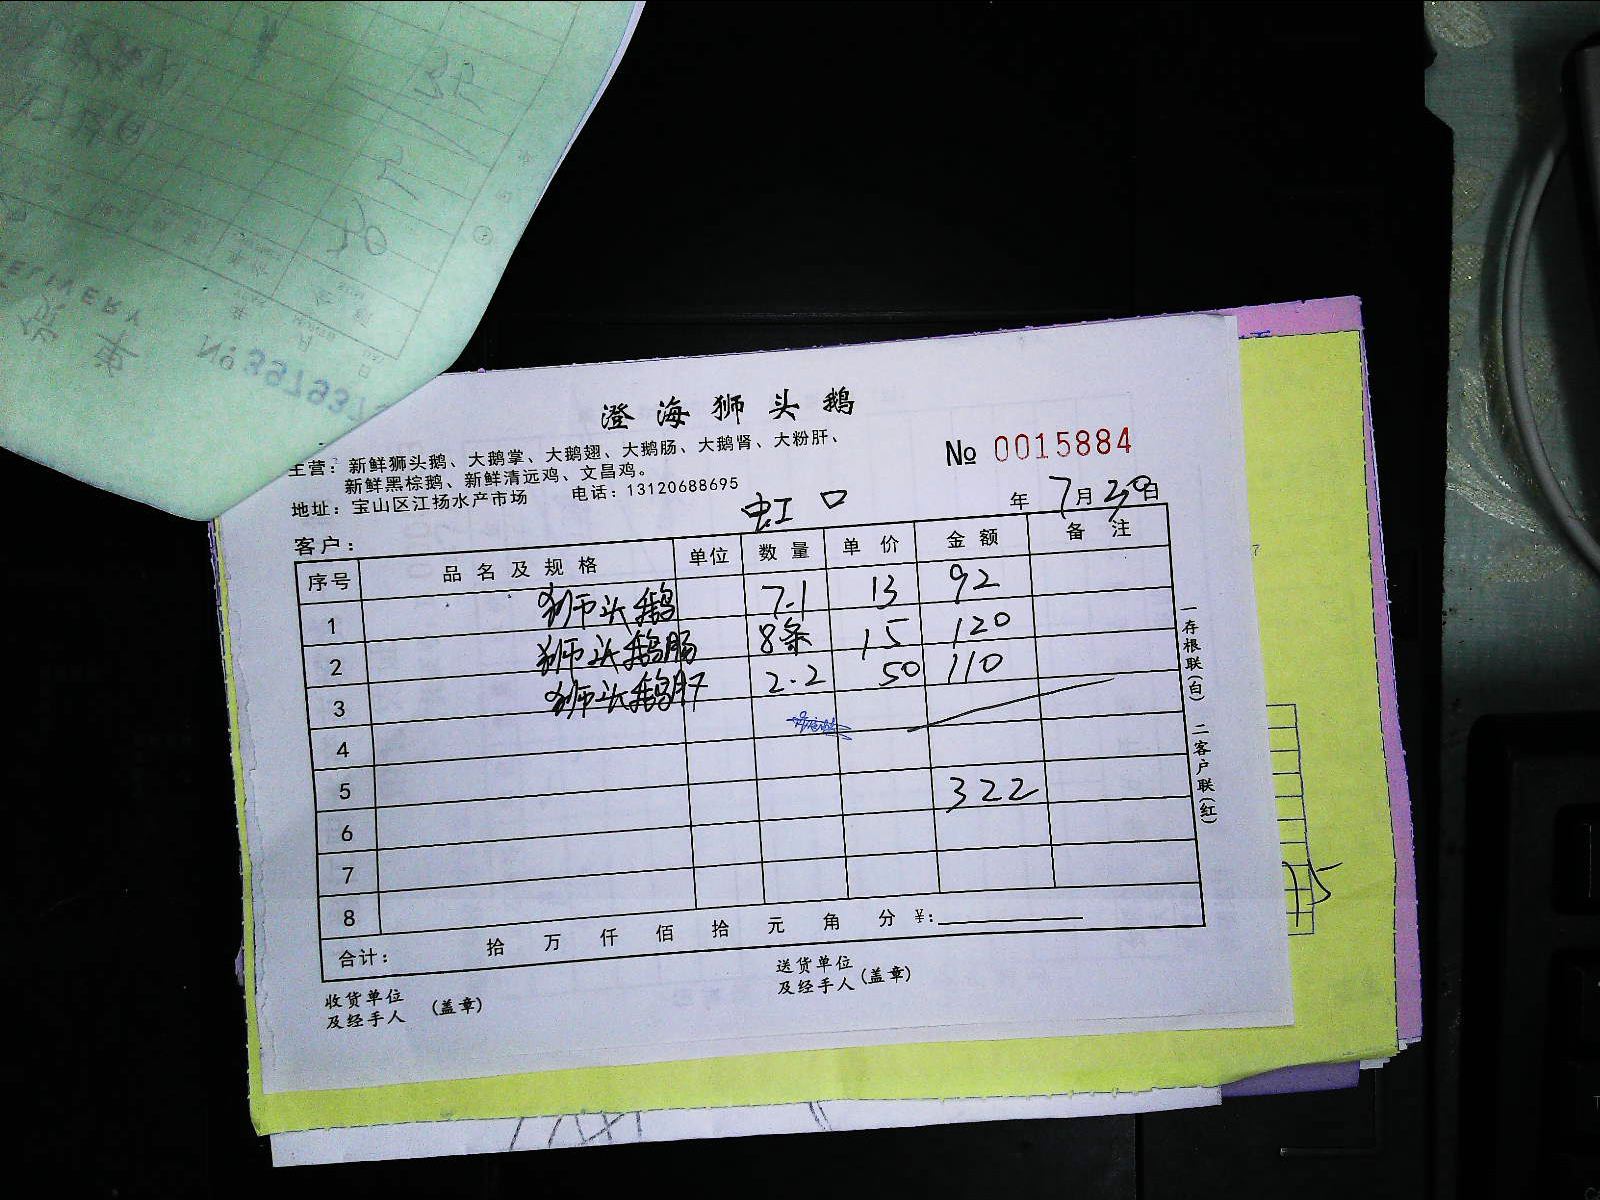 澄海狮头鹅
№ 0015884
主营：新鲜狮头鹅、大鹅掌、大鹅翅、大鹅肠、大鹅肾、大粉肝、
新鲜黑棕鹅、新鲜清远鸡、文昌鸡。
地址：宝山区江扬水产市场 电话：13120688695
客户： 虹口 年 7月30日
序号 品名及规格 单位 数量 单价 金额 备注
1 狮头鹅 7.1 13 92
2 狮头鹅肠 8条 15 120
3 狮头鹅肝 2.2 50 110
4
5 322
6
7
8
合计： 拾 万 仟 佰 拾 元 角 分 ¥：
收货单位
及经手人 (盖章)
送货单位
及经手人 (盖章)
一存根联(白) 二客户联(红)
№ 397937
DELIVERY